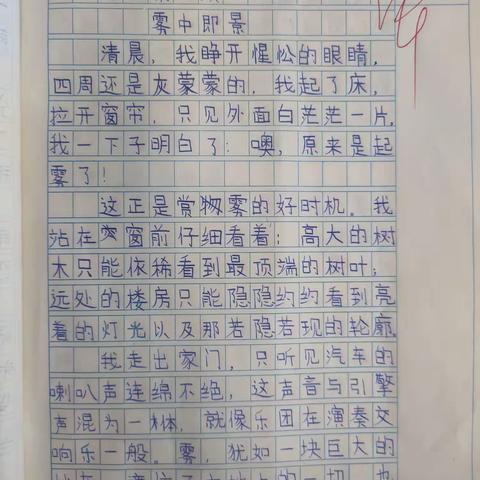 雾中即景
清晨，我睁开惺忪的眼睛，
四周还是灰蒙蒙的，我起了床，
拉开窗帘，只见外面白茫茫一片，
我一下子明白了：噢，原来是起
雾了！
这正是赏雾的好时机。我
站在窗前仔细看着：高大的树
木只能依稀看到最顶端的树叶；
远处的楼房只能隐隐约约看到亮
着的灯光以及那若隐若现的轮廓。
我走出家门，只听见汽车的
喇叭声连绵不绝，这声音与引擎
声混为一体，就像乐团在演奏交
响乐一般。雾，犹如一块巨大的
的一切，也